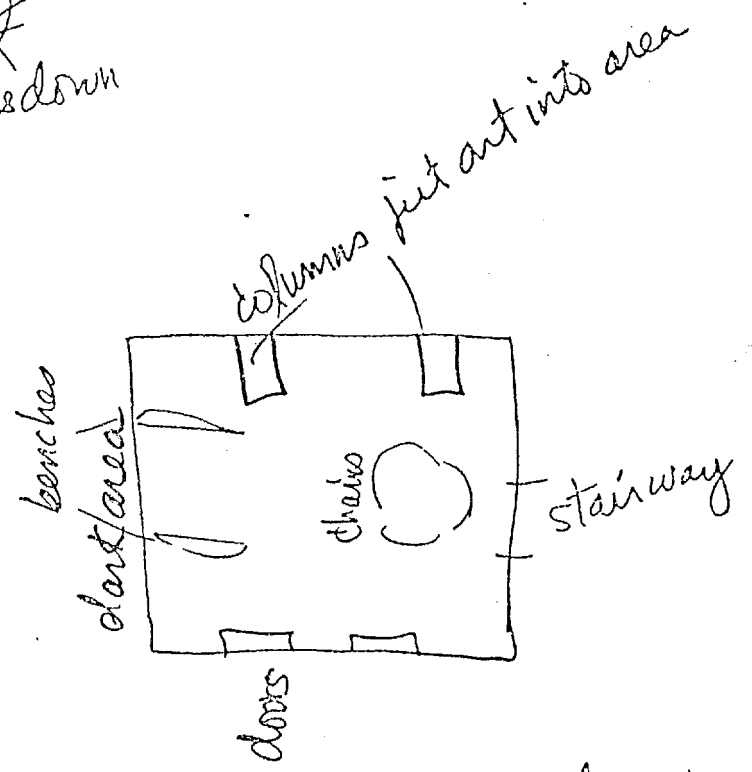 sdown
columns jut out into area
benches
dark area
chairs
stairway
doors